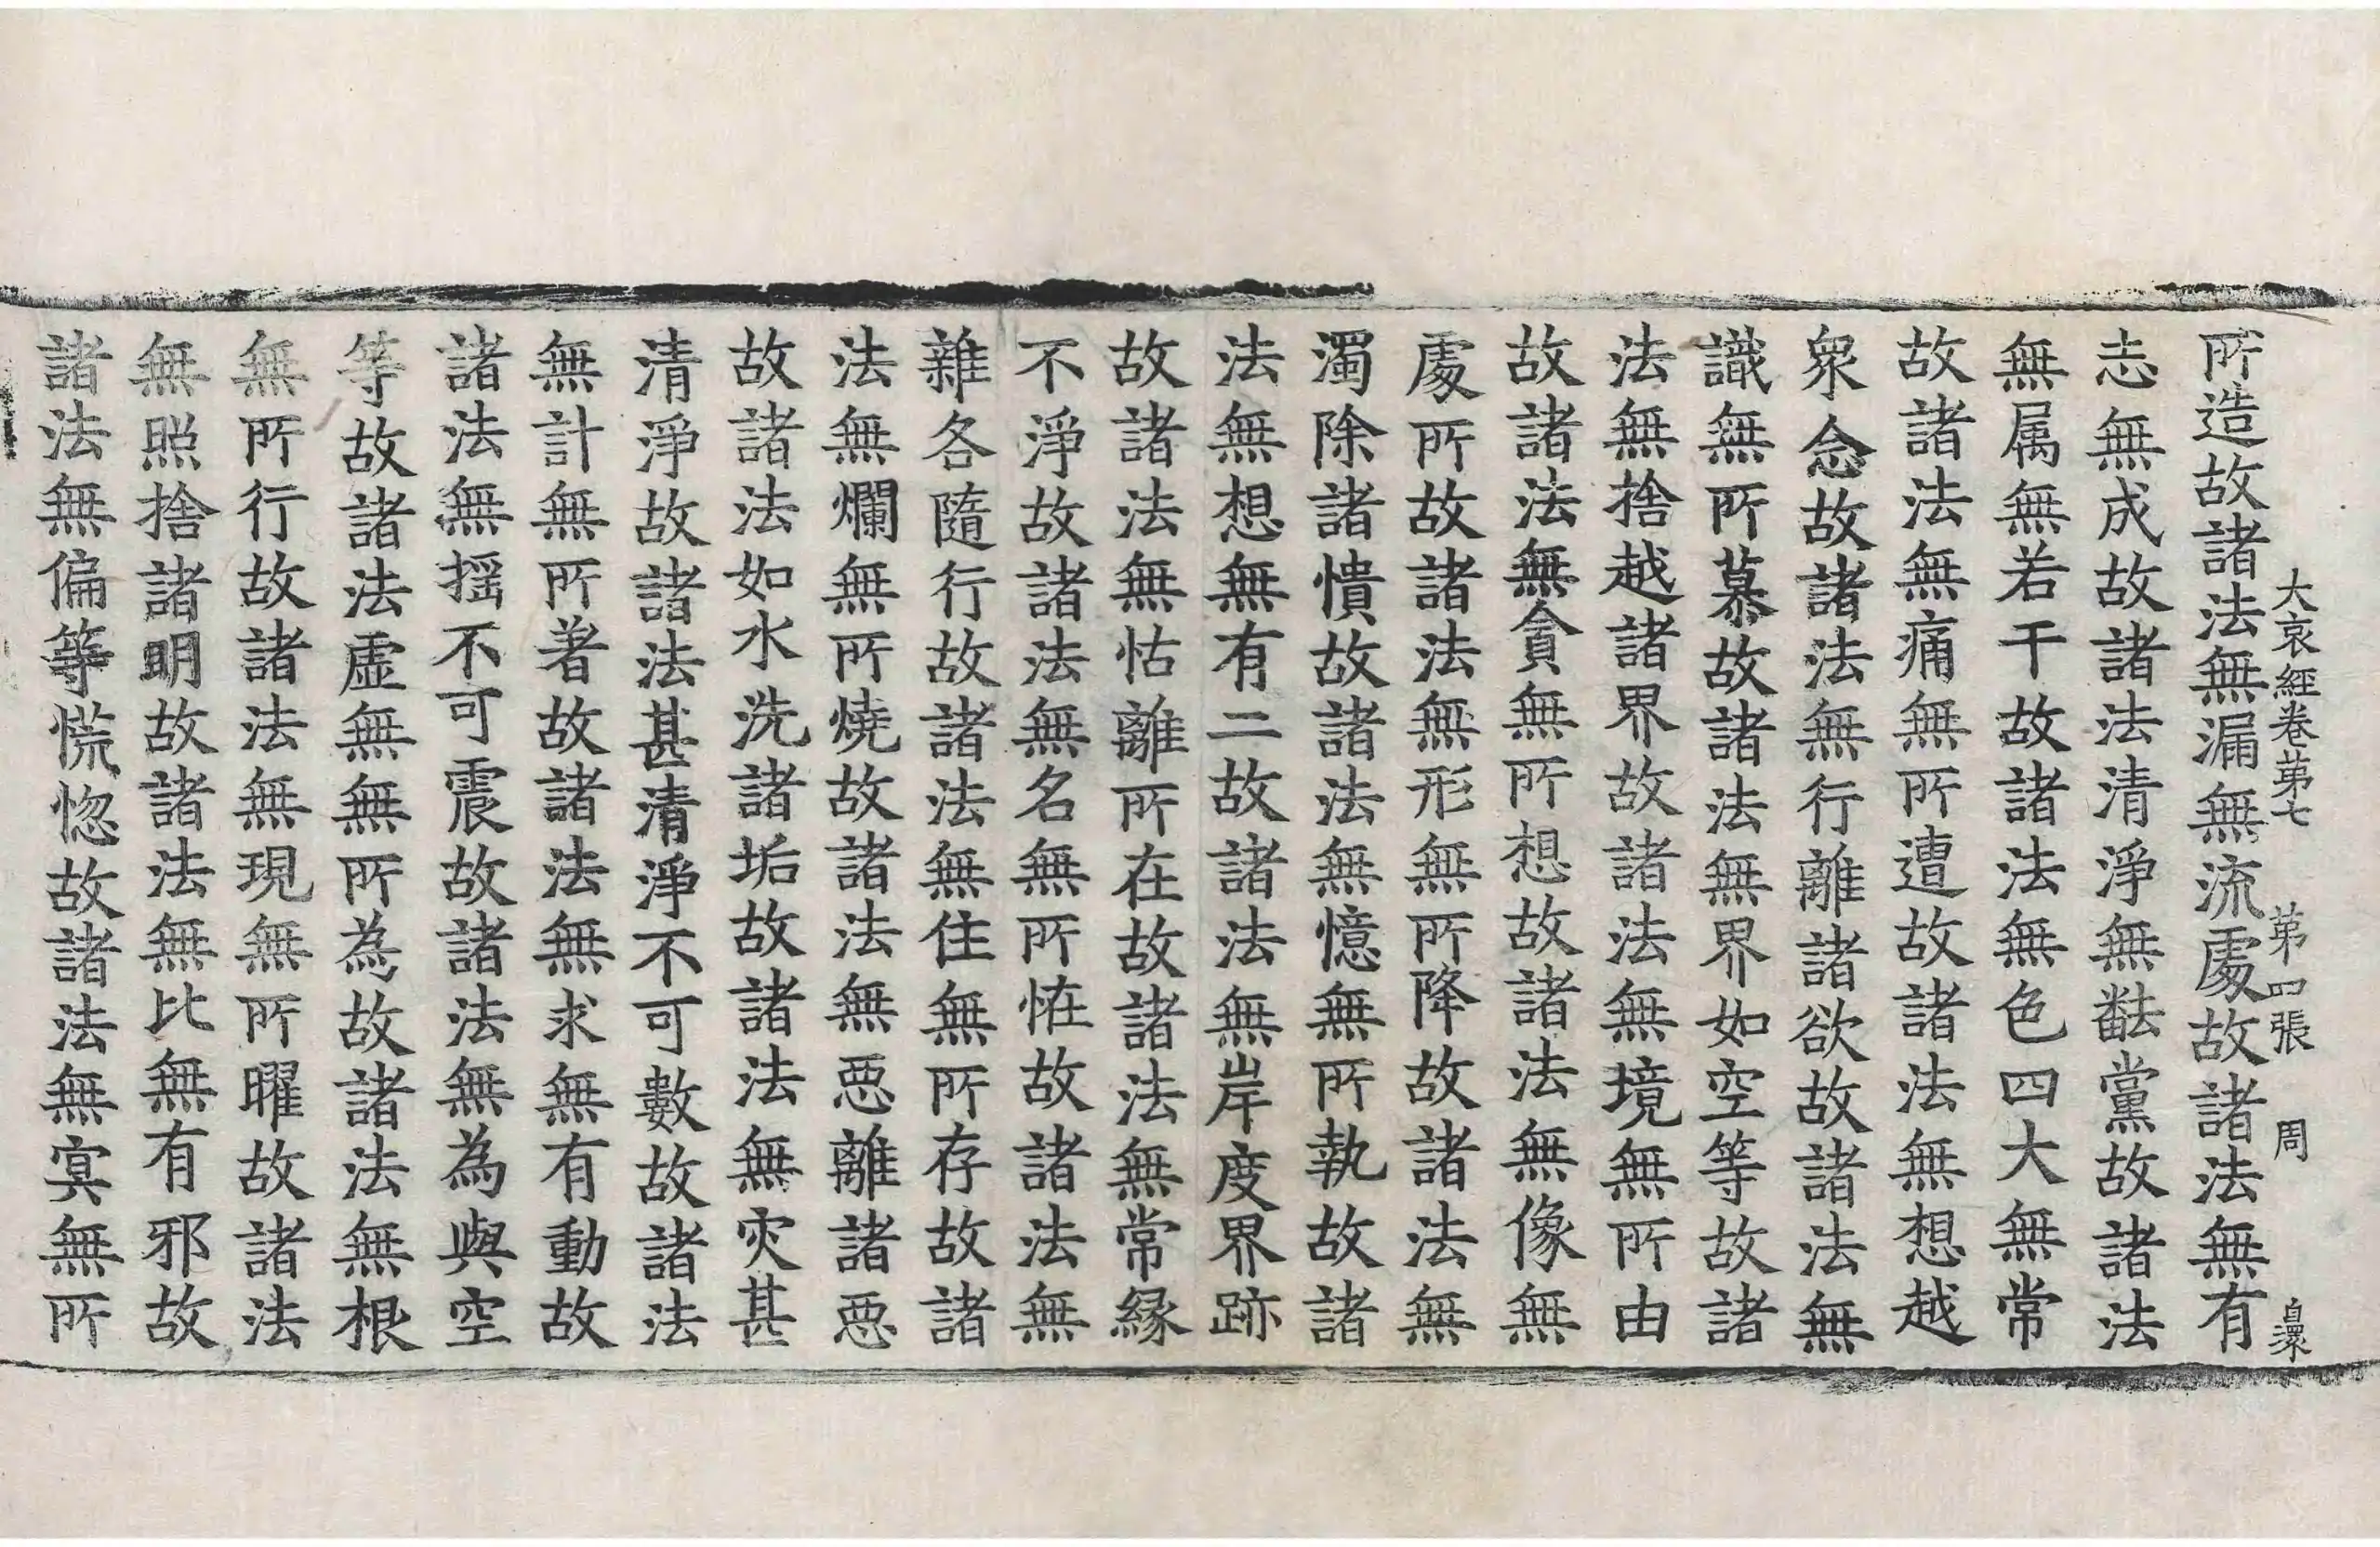 大哀經卷第七　第四張　周
所造故諸法無漏無流處故諸法無有
志無成故諸法清淨無黨故諸法
無属無若干故諸法無色四大無常
故諸法無痛無所遭故諸法無想越
衆念故諸法無行離諸欲故諸法無
識無所慕故諸法無界如空等故諸
法無捨越諸界故諸法無境無所由
故諸法無貪無所想故諸法無像無
處所故諸法無形無所降故諸法無
濁除諸憒故諸法無憶無所執故諸
法無想無有二故諸法無岸度界跡
故諸法無怙離所在故諸法無常緣
不淨故諸法無名無所恠故諸法無
雜各隨行故諸法無住無所存故諸
法無爛無所燒故諸法無惡離諸惡
故諸法如水洗諸垢故諸法無灾甚
清淨故諸法甚清淨不可數故諸法
無計無所著故諸法無求無有動故
諸法無搖不可震故諸法無為與空
等故諸法虛無無所為故諸法無根
無所行故諸法無現無所曜故諸法
無照捨諸明故諸法無比無有邪故
諸法無偏等慌惚故諸法無冥無所